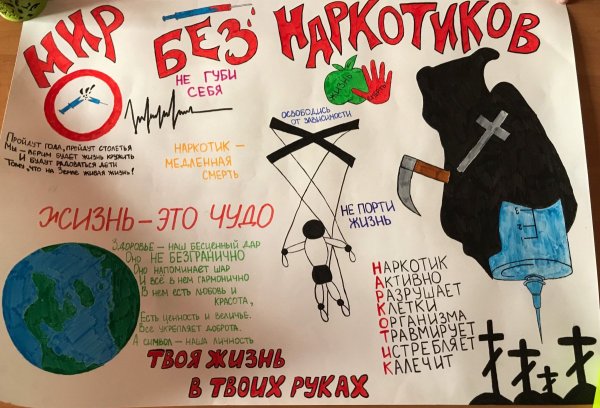 МИР БЕЗ НАРКОТИКОВ
НЕ ГУБИ
СЕБЯ
ЖИЗНЬ
СМЕРТЬ
ОСВОБОДИСЬ
ОТ ЗАВИСИМОСТИ
Пройдут года, пройдут столетья
Мы – верим будет жизнь кружить
И будут радоваться дети
Тому, что на Земле живая жизнь!
НАРКОТИК –
МЕДЛЕННАЯ
СМЕРТЬ
НЕ ПОРТИ
ЖИЗНЬ
ЖИЗНЬ – ЭТО ЧУДО
Здоровье – наш бесценный дар
Оно НЕ БЕЗГРАНИЧНО
Оно напоминает шар
И всё в нём гармонично
В нём есть любовь и
красота,
Есть ценность и величье.
Всё укрепляет доброта.
А символ – наша личность
НАРКОТИК
АКТИВНО
РАЗРУШАЕТ
КЛЕТКИ
ОРГАНИЗМА
ТРАВМИРУЕТ
ИСТРЕБЛЯЕТ
КАЛЕЧИТ
ТВОЯ ЖИЗНЬ
В ТВОИХ РУКАХ